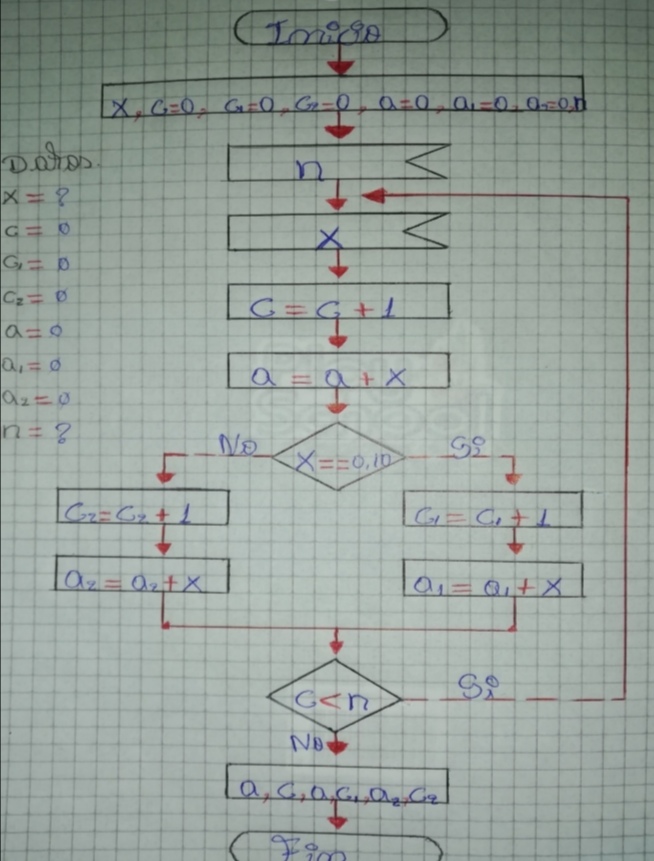 Inicio
X, C=0, C₁=0, C₂=0, a=0, a₁=0, a₂=0, n
Datos.
X = ?
C = 0
C₁ = 0
C₂ = 0
a = 0
a₁ = 0
a₂ = 0
n = ?
n
X
C = C + 1
a = a + X
X==0,10
No
Si
C₂ = C₂ + 1
a₂ = a₂ + X
C₁ = C₁ + 1
a₁ = a₁ + X
C < n
Si
No
a, C, a₁C₁, a₂, C₂
Fin